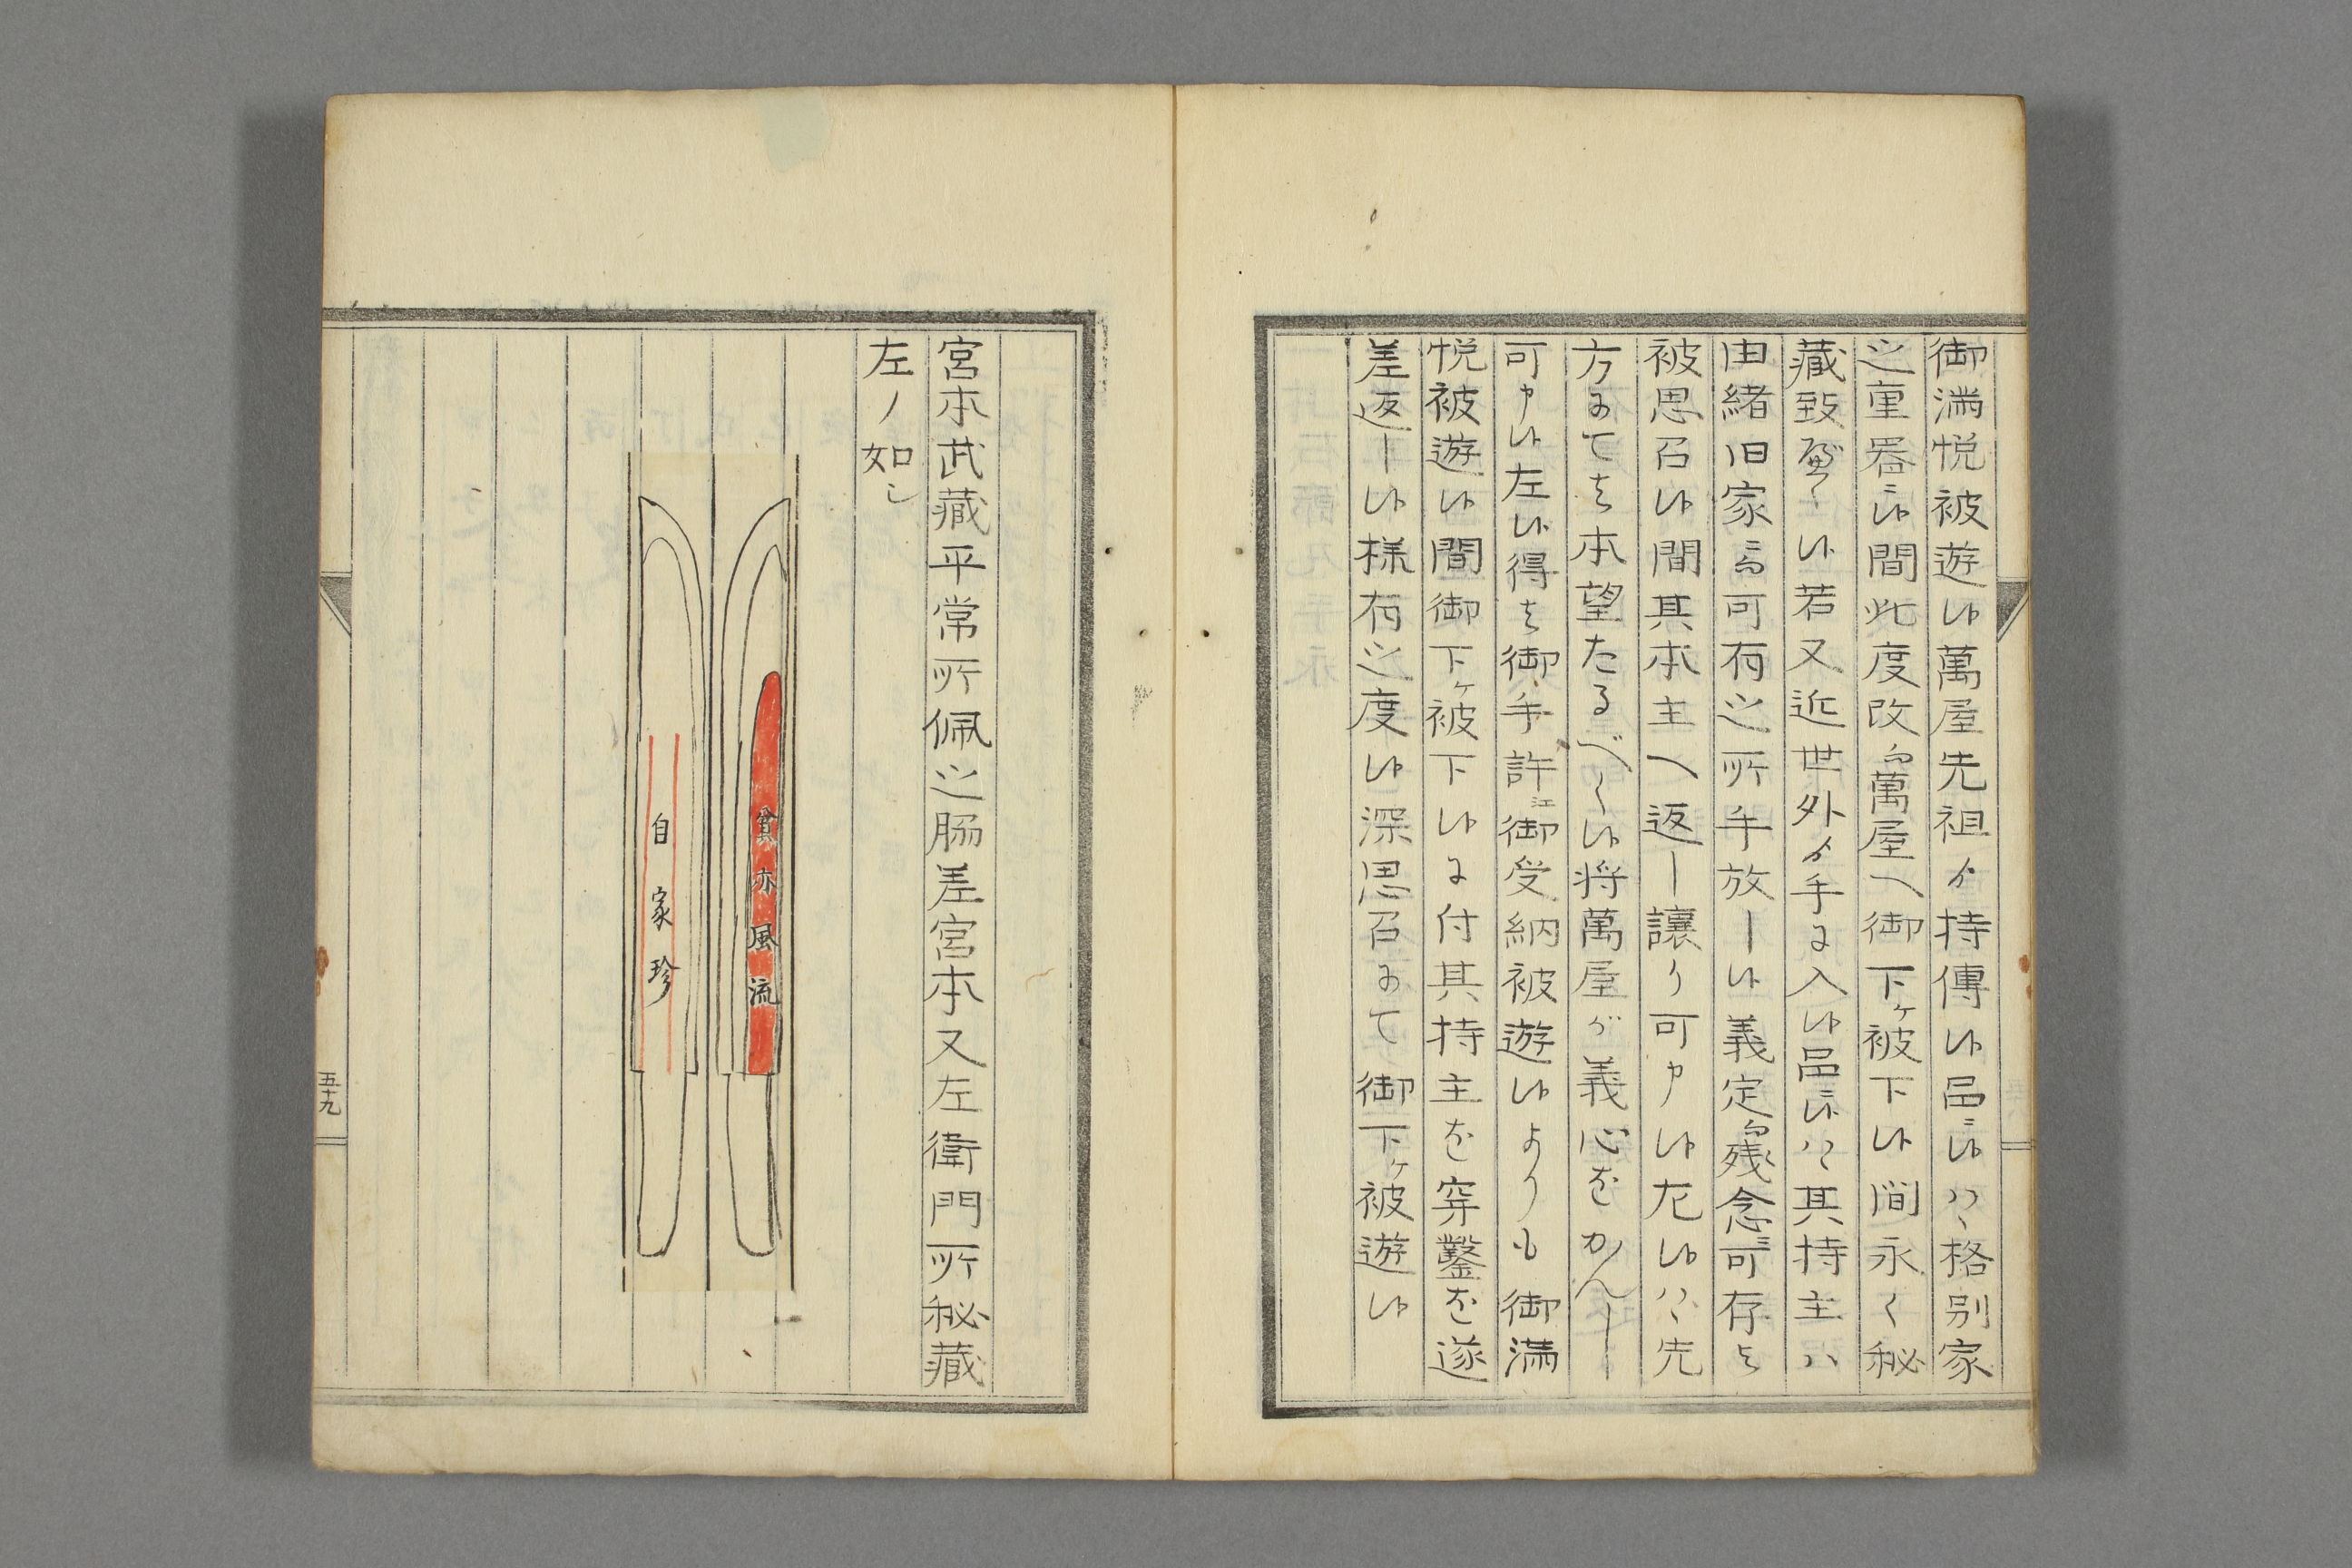 御満悦被遊候萬屋先祖ゟ持傳候品ニ候ハヽ格別家
之重器ニ候間此度改而萬屋へ御下ヶ被下候間永く秘
藏致シ候若又近世外ゟ手に入候品ニ候ハヽ其持主ハ
由緒旧家ニ而可有之所手放し候義定而残念ニ可存と
被思召候間其本主へ返し讓り可申候左候ハヽ先
方にても本望たるべく候将萬屋が義心をかんし
可申候左候得は御手許江御受納被遊候よりも御満
悦被遊候間御下ヶ被下候に付其持主を穿鑿を遂
差返し候様有之度候深思召にて御下ヶ被遊候
宮本武藏平常所佩之脇差宮本又左衛門所秘藏
左ノ如し
貧亦風流
自家珍
五十九